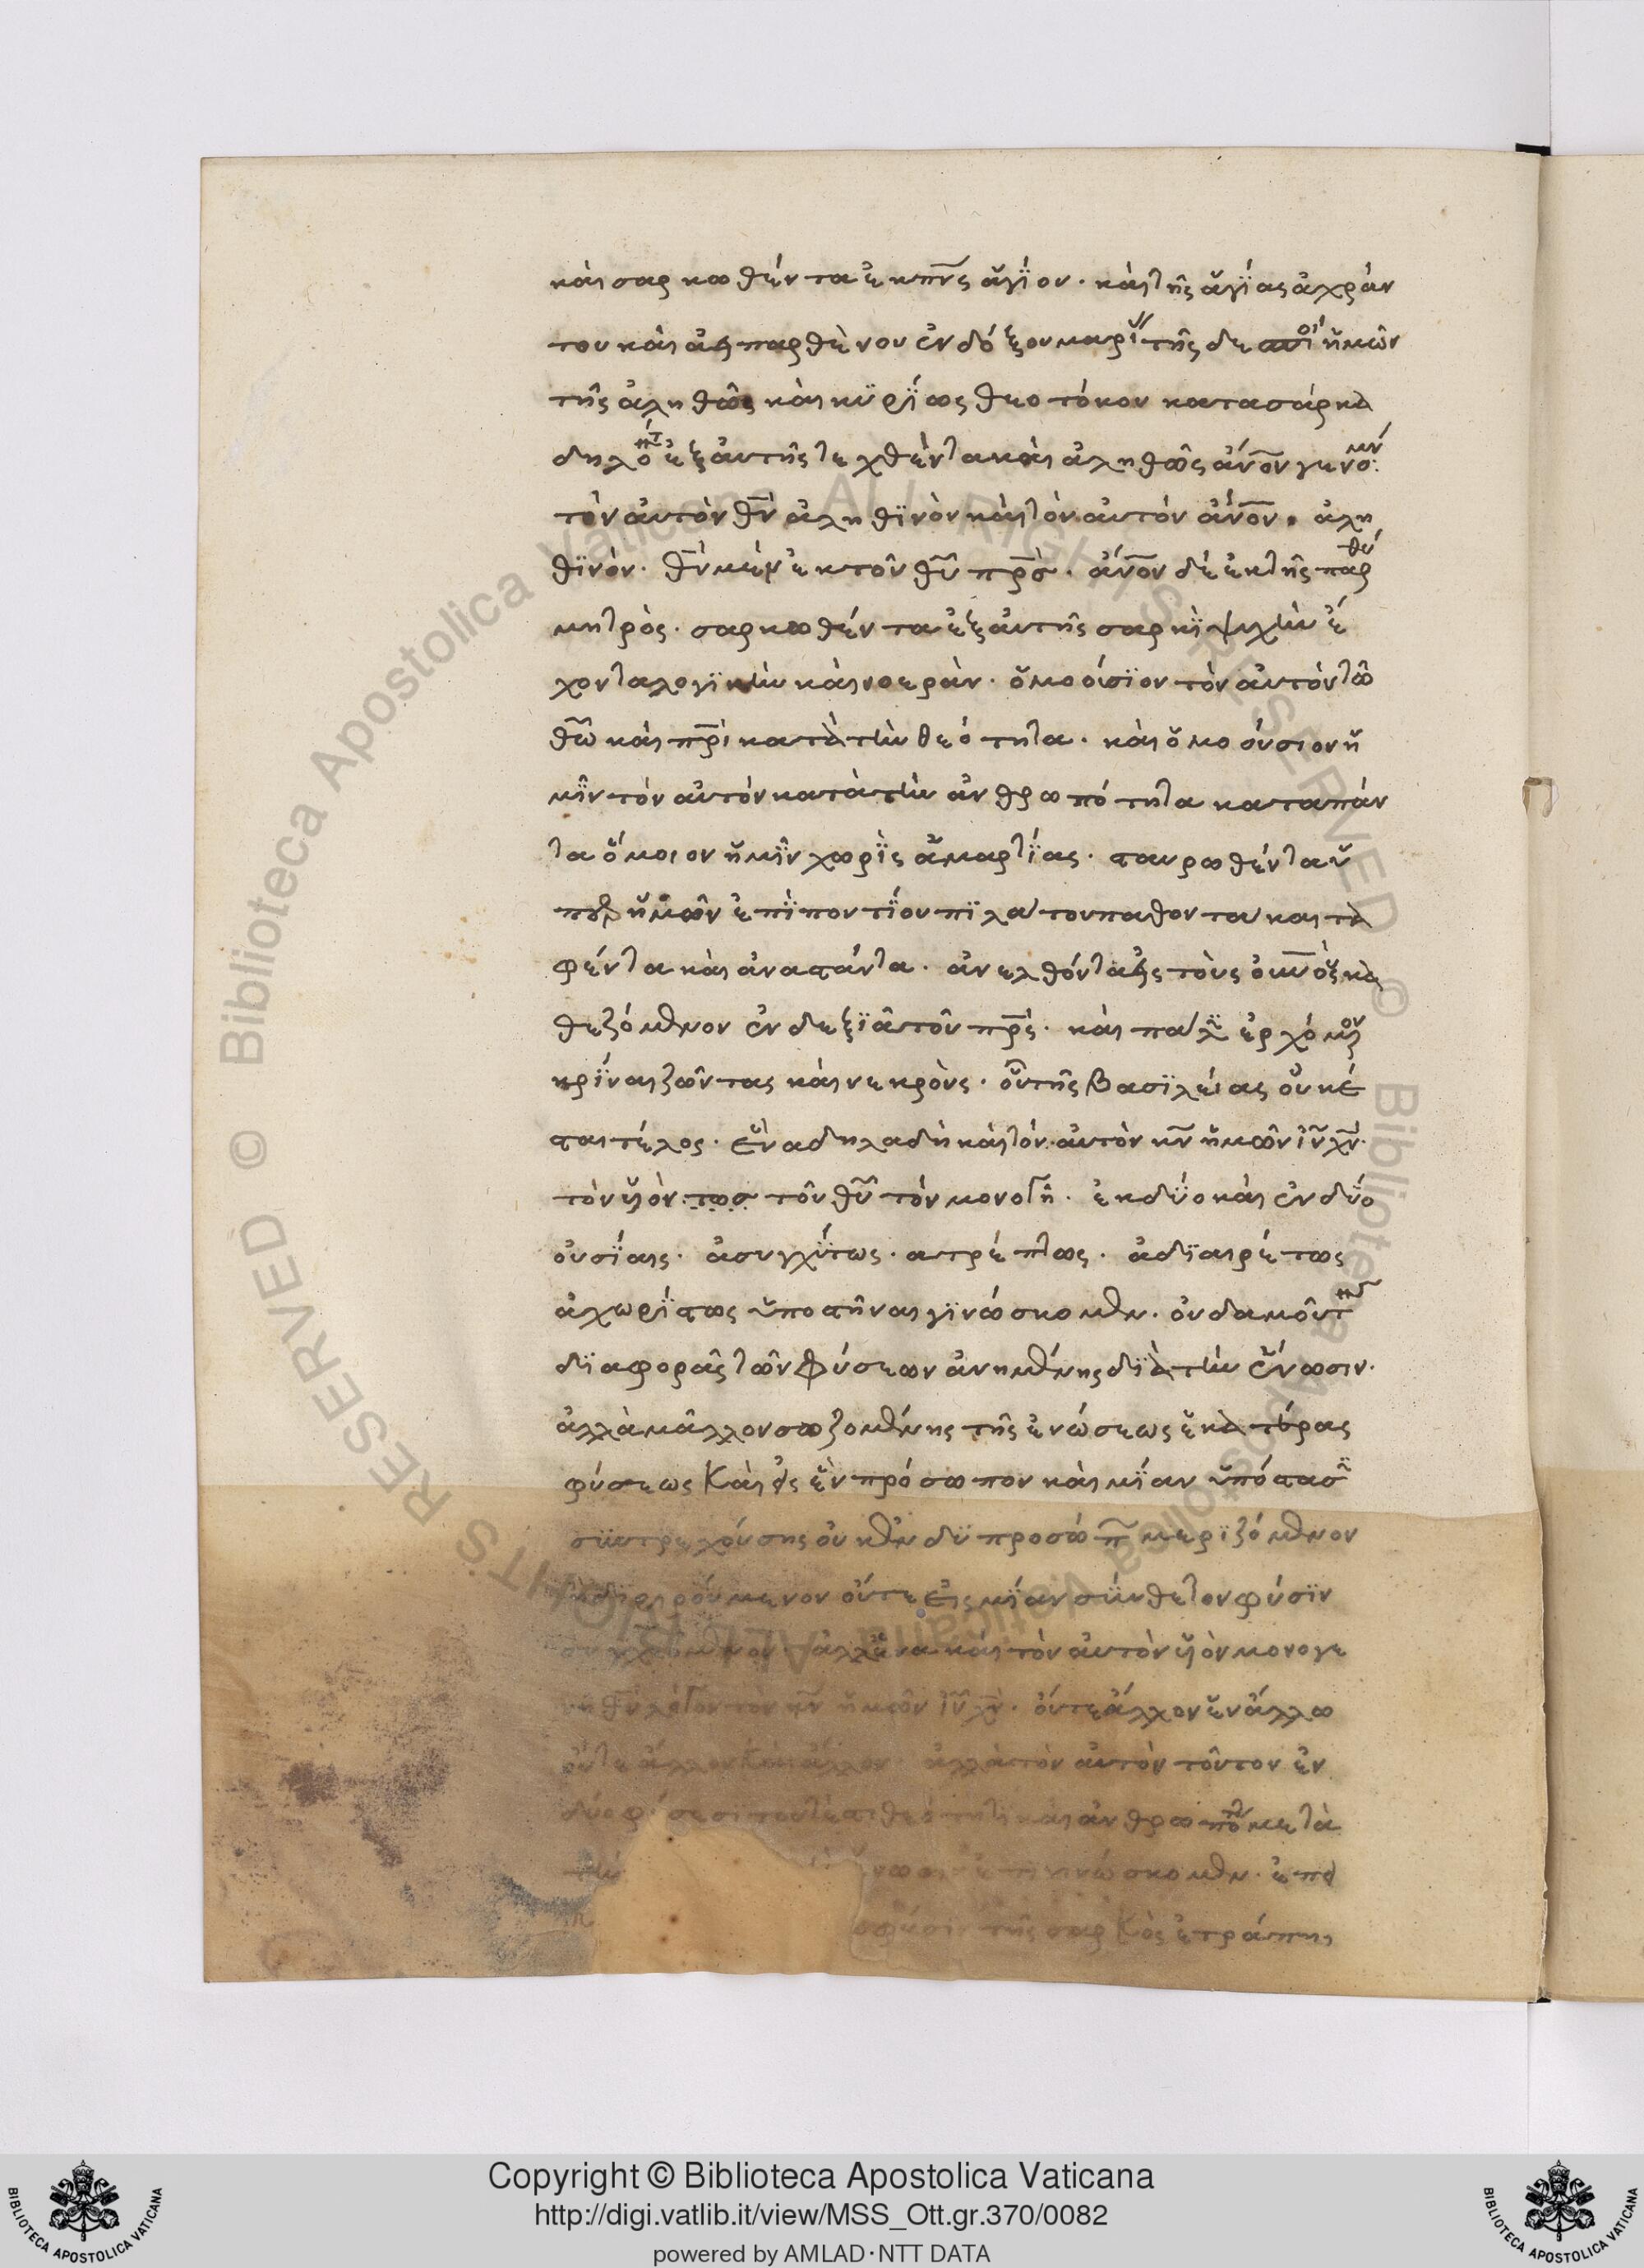 καὶ σαρκωθέντα ἐκ πν̅ς ἁγΐου· καὶ τῆς ἁγΐας ἀχράν
του καὶ ἀειπαρθὲνου ἐνδόξου μαρΐ τῆς δεσποί ἡμῶν
τῆς ἀληθῶς καὶ κυρΐως θεοτόκου κατασάρκα
δηλο ἐξ αὐτῆς τεχθέντα καὶ ἀληθῶς ἄν̅ον γενομν́:
τὸν αὐτὸν θν̅ ἀληθϊνὸν καὶ τὸν αὐτόν ἄν̅ον. ἀλη
θϊνόν· θν̅ μὲν ἐκ τοῦ θυ̅ πρ̅σ· ἄν̅ον δὲ ἐκ τῆς παρθέ
μητρὸς· σαρκωθέντα ἐξ αὐτῆς σαρκΐ ψυχὴν ἔ
χοντα λογϊκὴν καὶ νοεράν· ὁμοούσϊον τὸν αὐτὸν τῶ
θω̅ καὶ πρ̅ι κατὰ τὴν θεότητα· καὶ ὁμοούσιον ἡ
μῖν τὸν αὐτὸν κατὰ τὴν ἀνθρωπότητα καταπάν
τα ὅμοιον ἡμῖν χωρῒς ἁμαρτΐας· σταυρωθέντα ὑ
πὲρ ἡμῶν ἐπῒ ποντΐου πϊλάτου παθοντα και τα
φέντα καὶ ἀναστάντα· ἀνελθόντα εἰς τοὺς οὐν̅οὺς κα
θεζόμενον ἐν δεξϊᾶ τοῦ πρ̅ς· καὶ πάλϊ ἐρχόμεον
κρΐναι ζῶντας καὶ νεκρὸυς· οὗ τῆς βασϊλείας οὐκ ἔ
σται τέλος· ἕνα δηλαδὴ καὶ τὸν αὐτὸν κν̅ ἡμῶν ιν̅ χν̅·
τὸν υἱὸν τοσ τοῦ θυ̅ τὸν μονογῆ· ἐκ δύο καὶ ἐν δύο
οὐσΐαις· ἀσυγχύτως· ατρέπτως· ἀδϊαιρέτως
ἀχωρΐστως ὑποστῆναι γϊνώσκομεν· οὐδαμοῦ τῆς
δϊαφορᾶς τῶν φύσεων ἀνημένης δϊὰ τὴν ἕνωσιν·
ἀλλὰ μᾶλλον σωζομένης τῆς ἐνώσεως ἑκατέρας
φύσεως Καὶ εἰς ἓν πρόσωπον καὶ μΐαν ὑπόστασϊ
συντρεχούσης οὐκ ἐν δυ προσώπ μερϊζόμενον
ἢ δϊαιρούμενον οὔτε εἰς μΐαν σύνθετον φύσϊν
συγχεόμενον· ἀλλ' ἕνα καὶ τὸν αὐτὸν υἱὸν μονογε
νῆ θν̅ λόγον τὸν κν̅ ἡμῶν ιν̅ χν̅· οὔτε ἄλλον ἐν ἄλλω
οὔτε ἄλλον Καὶ ἄλλον· ἀλλὰ τὸν αὐτὸν τοῦτον ἐν
δύο φύσεσι τουτέστι θεότητι καὶ ἀνθρωπό μετὰ
τὴν ἕνωσιν γινώσκομεν· ἐπε
φύσιν τῆς σαρΚὸς ἐτράπηι